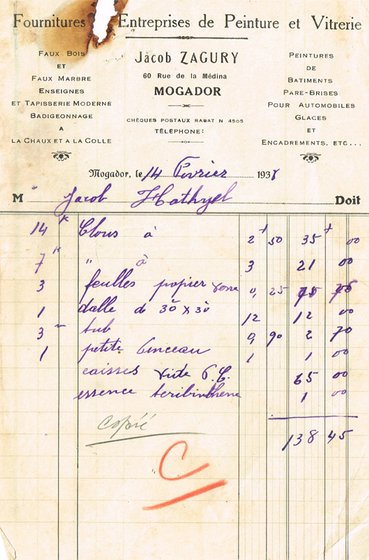 Fournitures Entreprises de Peinture et Vitrerie
FAUX BOIS
ET
FAUX MARBRE
ENSEIGNES
ET TAPISSERIE MODERNE
BADIGEONNAGE
A
LA CHAUX ET A LA COLLE
Jacob ZAGURY
60 RUE DE LA MÉDINA
MOGADOR
CHÈQUES POSTAUX RABAT N 4505
TÉLÉPHONE:
PEINTURES
DE
BATIMENTS
PARE-BRISES
POUR AUTOMOBILES
GLACES
ET
ENCADREMENTS, ETC...
Mogador, le 14 Fevrier 1938
M Jacob Doit
14 K Clous à 2 50 35 00
7 K " à 3 21 00
3 feulles papier 0,25 75
1 dalle de 30 x 30 12 12 00
3 tub 0 90 2 70
1 petite 1 1 00
caisses 65 00
essence 1 00
138 45
Copié
C